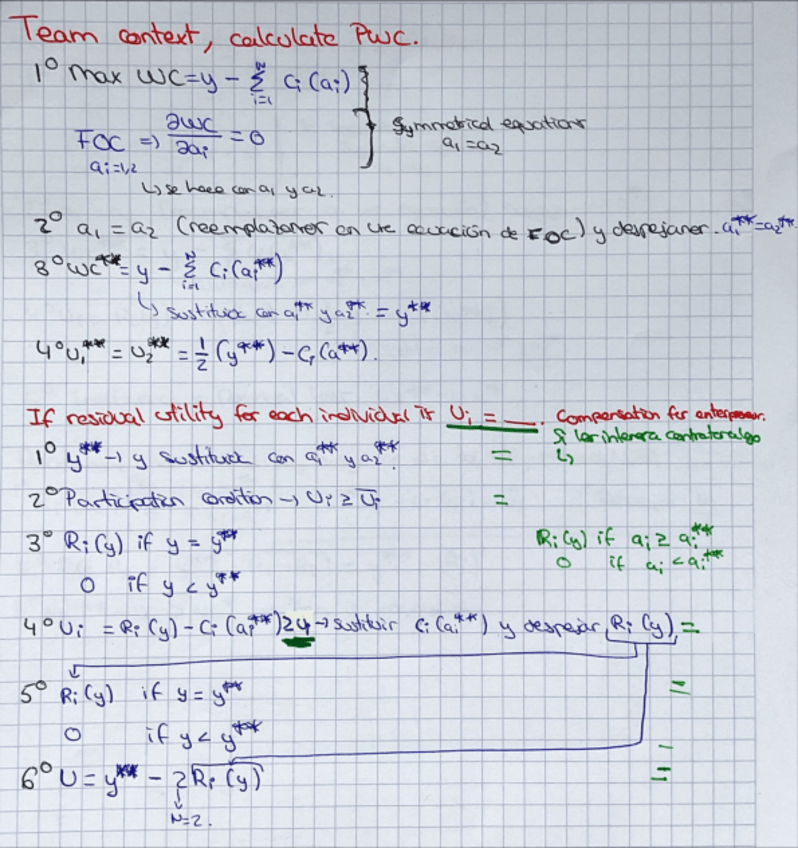 Team context, calculate PWC.
1º max WC = y - Σ_{i=1}^{N} Ci (ai)
FOC => ∂WC/∂ai = 0
ai=1,2
Symmetrical equations
a1 = a2
↳ se hace con a1 y a2.
2º a1 = a2 (reemplazamos en una ecuación de FOC) y despejamos. a1** = a2**
3º WC** = y - Σ_{i=1}^{N} Ci (ai**)
↳ sustituir con a1** y a2**. = y**
4º U1** = U2** = 1/2 (y**) - Ci (a**).
If residual utility for each individual is Ui = ___. Compensation for
Si les interesa contratar algo
1º y** → y sustituir con a1** y a2**. = ↳
2º Participation condition → Ui ≥ U̅i =
3º Ri (y) if y = y**
0 if y < y**
Ri (y) if ai ≥ ai**
0 if ai < ai**
4º Ui = Ri (y) - Ci (ai**) ≥ 4 → sustituir Ci (ai**) y despejar Ri (y) =
5º Ri (y) if y = y** =
0 if y < y** -
6º U = y** - 2 Ri (y) =
↓
N=2.